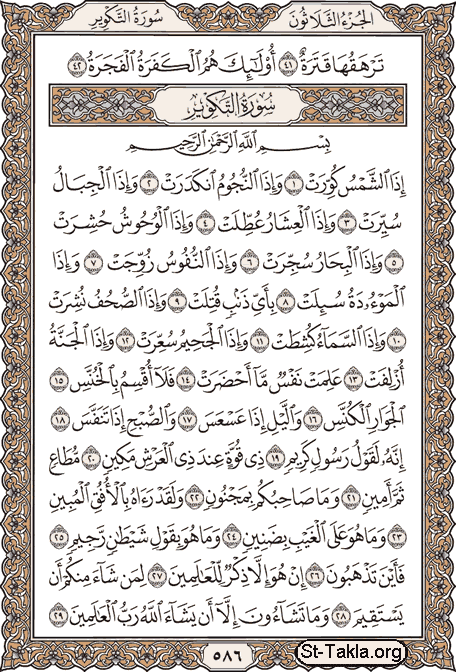 الجزء الثلاثون
سورة التكوير
تَرْهَقُهَا قَتَرَةٌ ٤١ أُوْلَٰٓئِكَ هُمُ ٱلْكَفَرَةُ ٱلْفَجَرَةُ ٤٢
سورة التكوير
بِسْمِ ٱللَّهِ ٱلرَّحْمَٰنِ ٱلرَّحِيمِ
إِذَا ٱلشَّمْسُ كُوِّرَتْ ١ وَإِذَا ٱلنُّجُومُ ٱنكَدَرَتْ ٢ وَإِذَا ٱلْجِبَالُ
سُيِّرَتْ ٣ وَإِذَا ٱلْعِشَارُ عُطِّلَتْ ٤ وَإِذَا ٱلْوُحُوشُ حُشِرَتْ
٥ وَإِذَا ٱلْبِحَارُ سُجِّرَتْ ٦ وَإِذَا ٱلنُّفُوسُ زُوِّجَتْ ٧ وَإِذَا
ٱلْمَوْءُۥدَةُ سُئِلَتْ ٨ بِأَيِّ ذَنۢبٍ قُتِلَتْ ٩ وَإِذَا ٱلصُّحُفُ نُشِرَتْ
١٠ وَإِذَا ٱلسَّمَآءُ كُشِطَتْ ١١ وَإِذَا ٱلْجَحِيمُ سُعِّرَتْ ١٢ وَإِذَا ٱلْجَنَّةُ
أُزْلِفَتْ ١٣ عَلِمَتْ نَفْسٌ مَّآ أَحْضَرَتْ ١٤ فَلَآ أُقْسِمُ بِٱلْخُنَّسِ ١٥
ٱلْجَوَارِ ٱلْكُنَّسِ ١٦ وَٱلَّيْلِ إِذَا عَسْعَسَ ١٧ وَٱلصُّبْحِ إِذَا تَنَفَّسَ ١٨
إِنَّهُۥ لَقَوْلُ رَسُولٍ كَرِيمٍ ١٩ ذِى قُوَّةٍ عِندَ ذِى ٱلْعَرْشِ مَكِينٍ ٢٠ مُّطَاعٍ
ثَمَّ أَمِينٍ ٢١ وَمَا صَاحِبُكُم بِمَجْنُونٍ ٢٢ وَلَقَدْ رَءَاهُ بِٱلْأُفُقِ ٱلْمُبِينِ
٢٣ وَمَا هُوَ عَلَى ٱلْغَيْبِ بِضَنِينٍ ٢٤ وَمَا هُوَ بِقَوْلِ شَيْطَٰنٍ رَّجِيمٍ ٢٥
فَأَيْنَ تَذْهَبُونَ ٢٦ إِنْ هُوَ إِلَّا ذِكْرٌ لِّلْعَٰلَمِينَ ٢٧ لِمَن شَآءَ مِنكُمْ أَن
يَسْتَقِيمَ ٢٨ وَمَا تَشَآءُونَ إِلَّآ أَن يَشَآءَ ٱللَّهُ رَبُّ ٱلْعَٰلَمِينَ ٢٩
٥٨٦
St-Takla.org